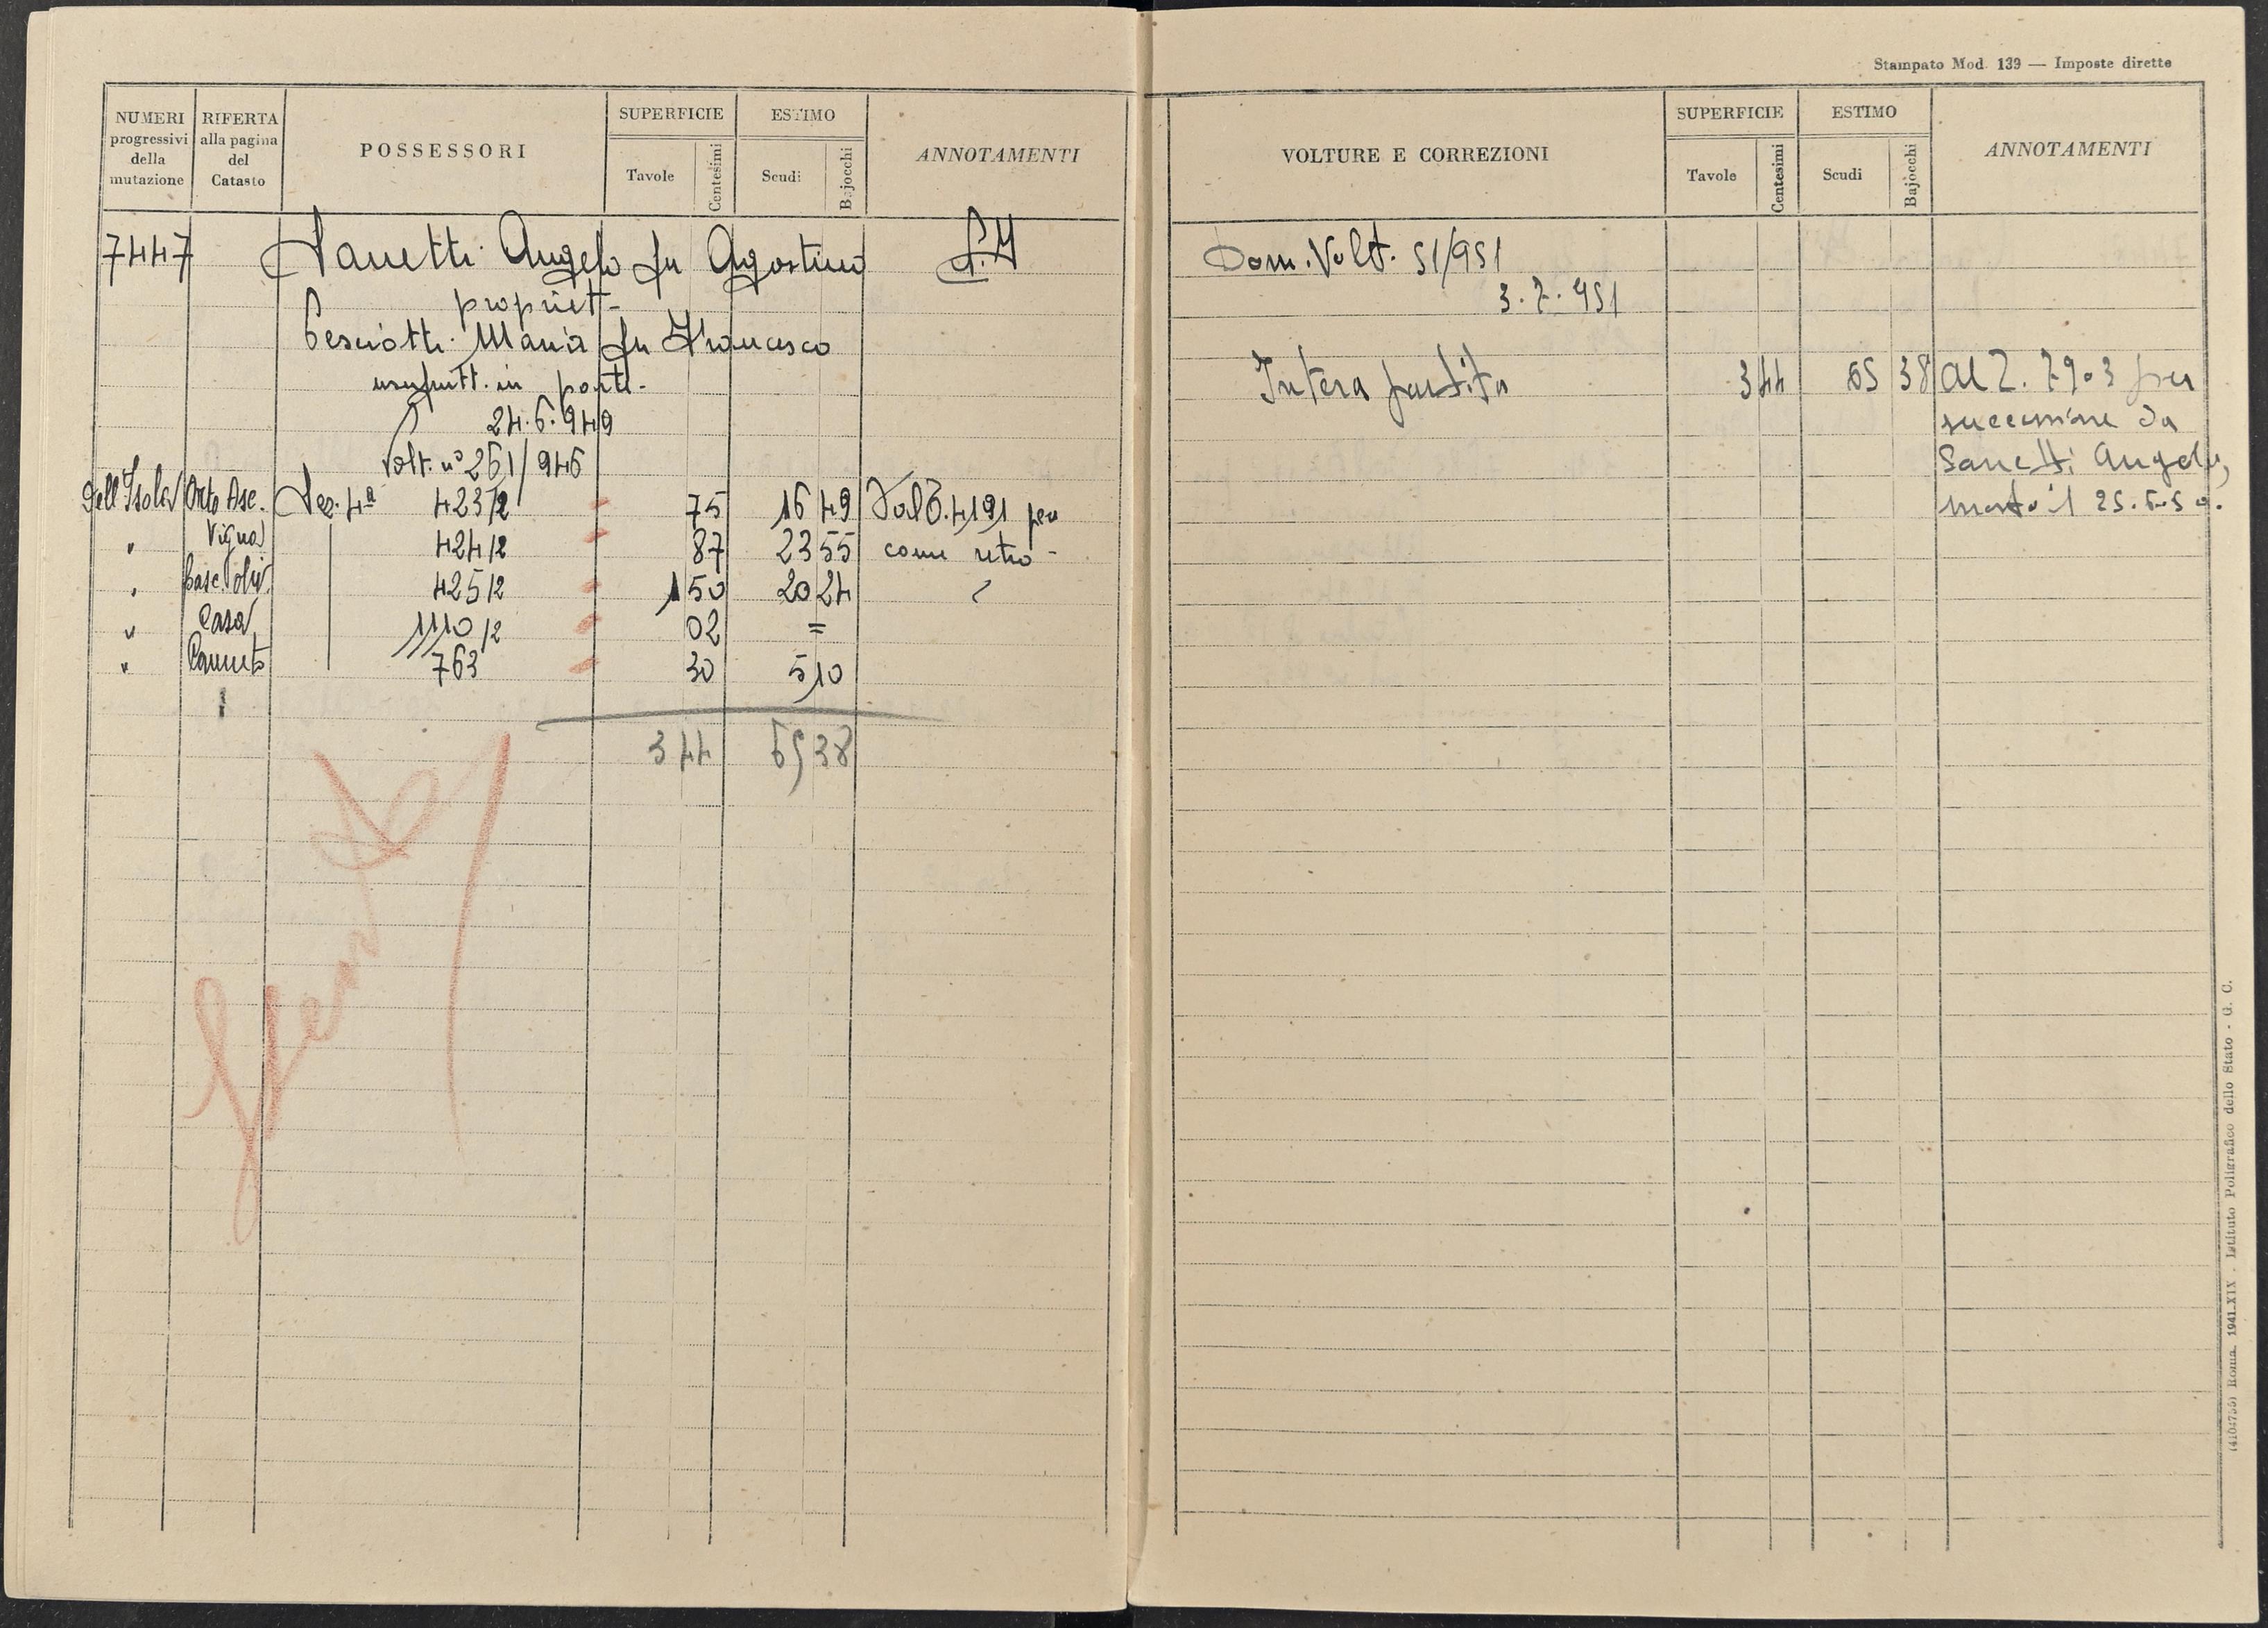 NUMERI progressivi della mutazione
RIFERTA alla pagina del Catasto
POSSESSORI
SUPERFICIE
Tavole
Centesimi
ESTIMO
Scudi
Bajocchi
ANNOTAMENTI
7447 Sanetti Angelo fu Agostino
propriet-
Pesciotti Maria fu Francesco
usufrutt. in parte-
24.6.949
Volt. n° 261/946
Dell'Isola Orto Asc. Sez. 4ª 423/2 75 16 49 Dal 6.4191 per
" Vigna 424/2 87 23 55 come retro -
" Casc. Oliv. 425/2 1 50 20 24
" Casa 1110/2 02 =
" Canneto 763 30 5 10
3 44 65 38
Stampato Mod. 139 — Imposte dirette
VOLTURE E CORREZIONI
SUPERFICIE
Tavole
Centesimi
ESTIMO
Scudi
Bajocchi
ANNOTAMENTI
Dom. Volt. 51/951
3.7.951
Intera partita 3 44 65 38 Al 2. 7903 per
successione da
Sanetti Angelo,
morto il
Istituto Poligrafico dello Stato - G. C.